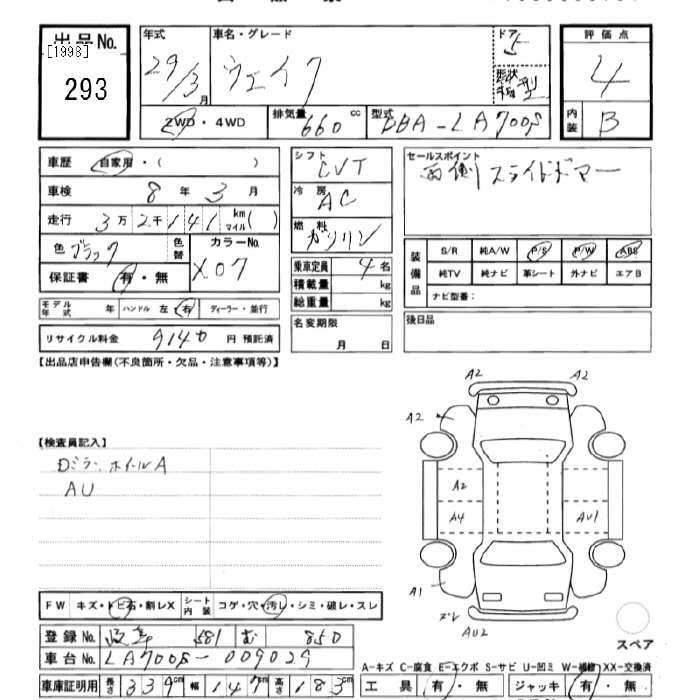 出品No.
[1998]
293
年式
29/3月
車名・グレード
ウェイク
ドア
5
形状
評価点
4
内装
B
2WD・4WD
排気量
660 cc
型式
DBA-LA700S
車歴
自家用・( )
車検
8年3月
走行
3万2千141 km マイル( )
色
ブラック
色替
カラーNo.
X07
保証書
有・無
シフト
CVT
冷房
AC
燃料
ガソリン
乗車定員 4名
積載量 kg
総重量 kg
セールスポイント
両側スライドドアー
装備品
S/R 純A/W P/S P/W ABS
純TV 純ナビ 革シート 外ナビ エアB
ナビ型番:
モデル年式 年 ハンドル 左 右 ディーラー・並行
リサイクル料金 9140円 預託済
名変期限
月 日
後日品
【出品店申告欄(不良箇所・欠品・注意事項等)】
【検査員記入】
Dミラー、ホイールA
AU
A2 A2
A2 A2
A2
A4 AU1
A1
ズレ
AU2
スペア
FW キズ・トビ石・割レX シート内装 コゲ・穴・汚レ・シミ・破レ・スレ
登録No. 581 む 850
車台No. LA700S-009029
A-キズ C-腐食 E-エクボ S-サビ U-凹ミ W-補修 XX-交換済
車庫証明用 長さ 339cm 幅 147cm 高さ 183cm
工具 有・無 ジャッキ 有・無